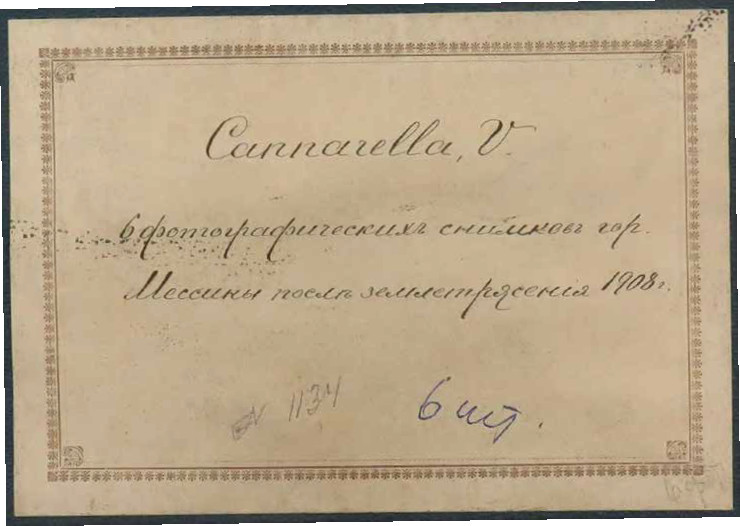 Cannarella, V.
6 фотографическихъ снимковъ гор.
Мессины послѣ землетрясения 1908 г.
1134
6 шт.